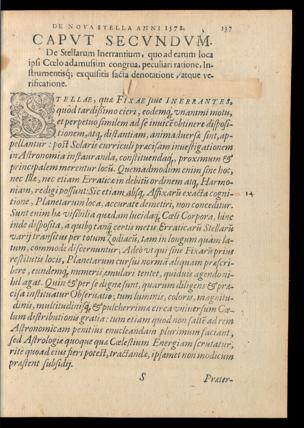 DE NOVA STELLA ANNI 1572. 137
CAPVT SECVNDVM.
De Stellarum Inerrantium, quo ad earum loca
ipsi Cœlo adamussim congrua, peculiari ratione, In-
strumentisq; exquisitis facta denotatione, atque ve-
rificatione.
STELLAE, quæ FIXAE siue INERRANTES,
quòd tardissimo cieri, eodemq; vnanimi motu,
et perpetuò similem ad se inuicē obtinere disposi-
tionem, atq; distantiam, animaduersæ sint, ap-
pellantur: post Solaris curriculi præcisam inuestigationem
in Astronomia instauranda, constituendaq;, proximum &
principalem merentur locū. Quemadmodum enim sine hoc,
nec Illæ, nec etiam Erraticæ in debitū ordinem atq; Harmo-
niam, redigi possunt: Sic etiam absq; Affixarū exacta cogni-
tione, Planetarum loca, accurate demetiri, non conceditur. 14
Sunt enim hæ visibilia quædam lucidaq; Cœli Corpora, hinc
inde disposita, à quibꝰ tanq; certis metis Erraticarū Stellarū
varij transitus per totum Zodiacū, tam in longum quàm la-
tum, commodè discernuntur. Adeò vt qui sine Fixarū priùs
restitutis locis, Planetarum cursui normā aliquam præscri-
bere, eundemq; numeris emulari tentet, quiduis agendo ni-
hil agat. Quin & per se dignæ sunt, quarum diligens & præ-
cisa instituatur Observatio; tum luminis, coloris, magnitu-
dinis, multitudinisq; & pulcherrima circa vniversum Cœ-
lum distributionis gratia: tum etiam quod non saltē ad rem
Astronomicam penitius enucleandam plurimum faciant,
sed Astrologia quoque quæ Cælestium Energiam scrutatur,
ritè quoad eius fieri potest, tractanda, ipsæmet non modicum
præstent subsidij.
S Præter-